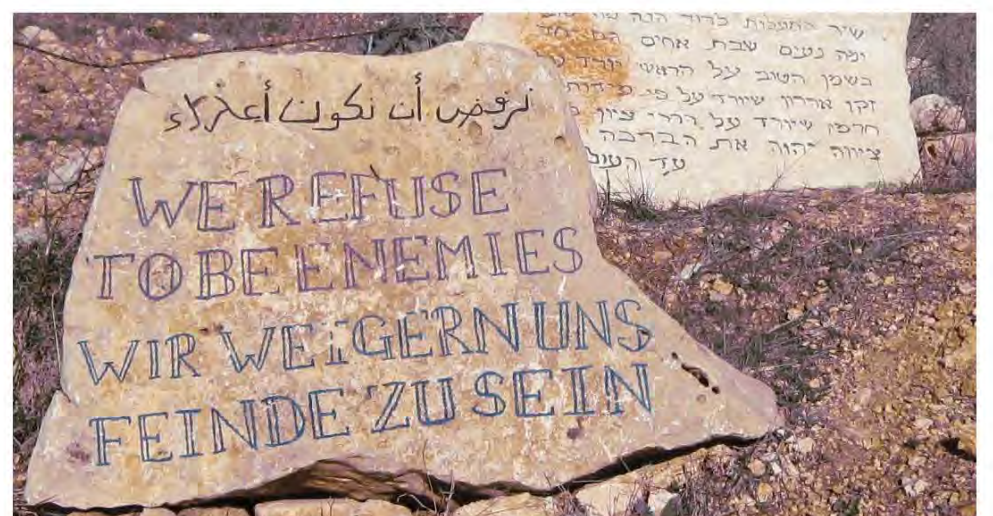 نرفض أن نكون أعداء
WE REFUSE
TO BE ENEMIES
WIR WEIGERN UNS
FEINDE ZU SEIN
שיר המעלות לדוד הנה מה טוב
ומה נעים שבת אחים גם יחד
כשמן הטוב על הראש יורד
זקן אהרון שיורד על פי
חרמון שיורד על הררי ציון
ציווה יהוה את הברכה
עד